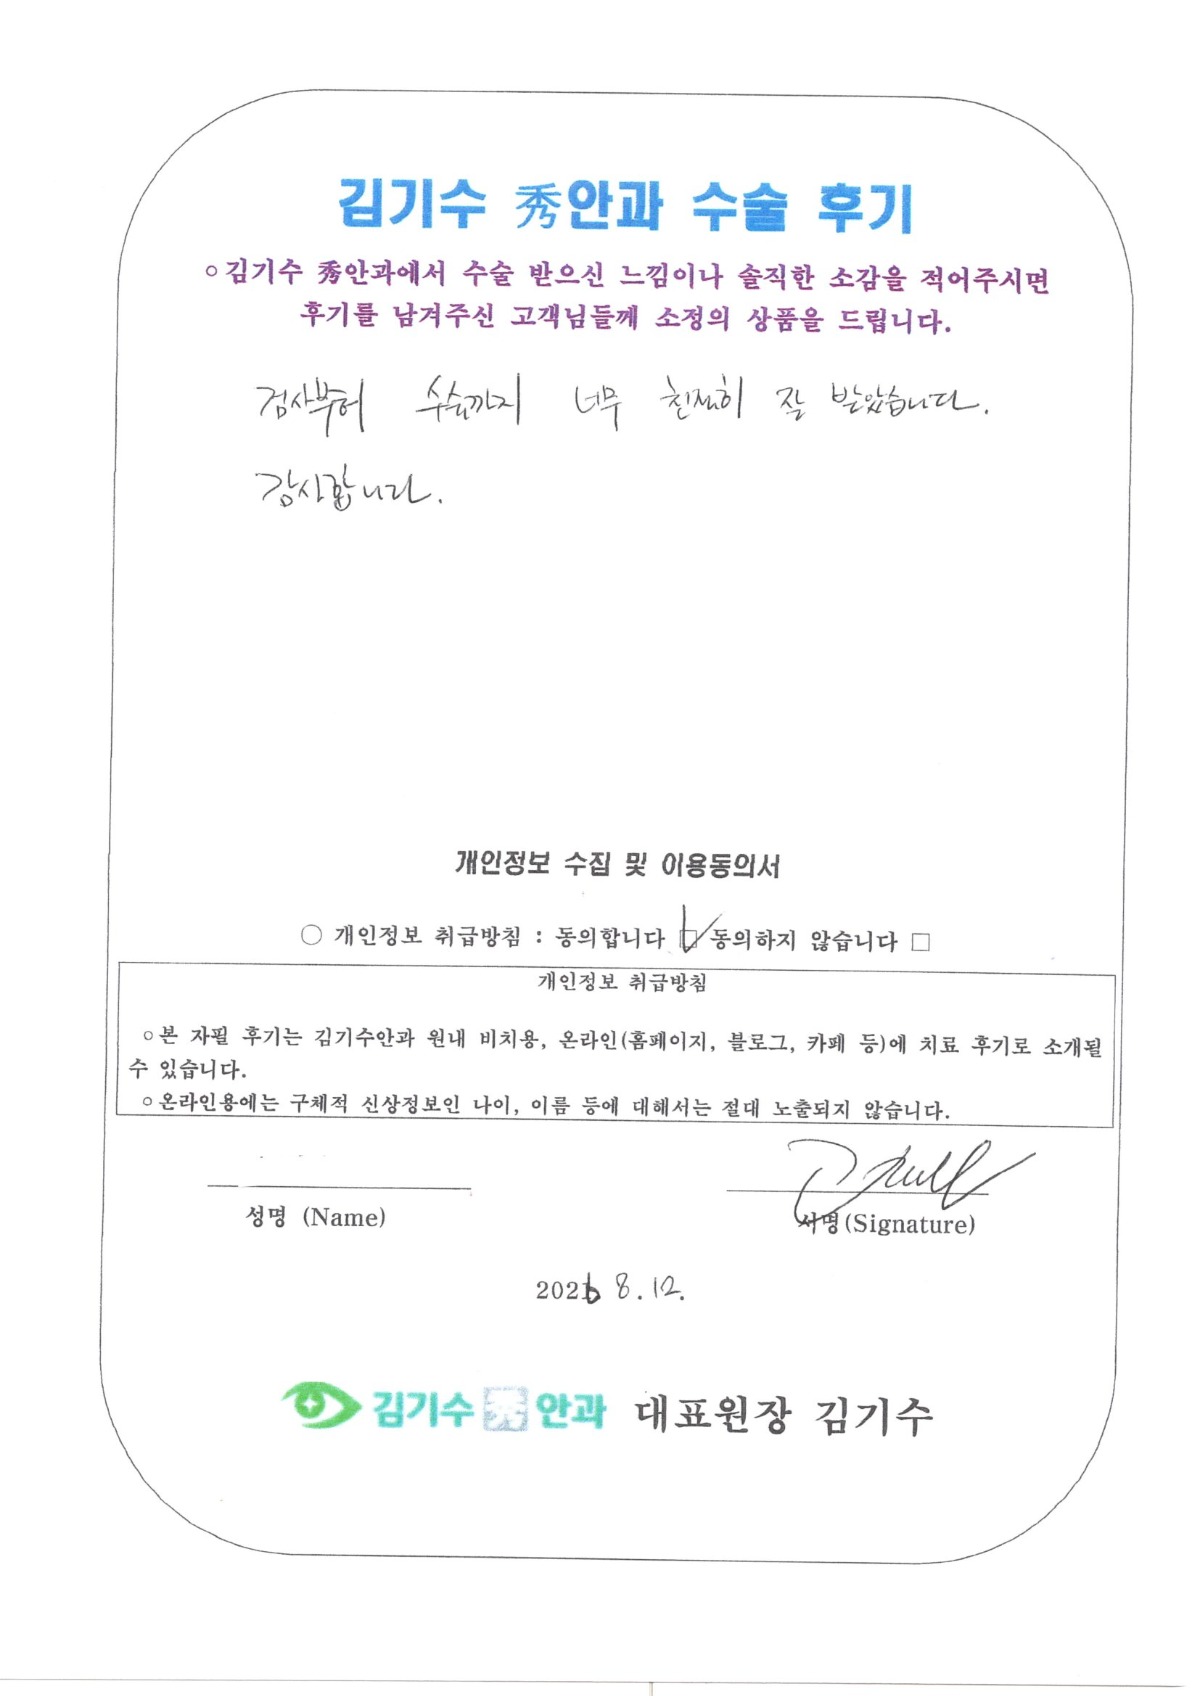 김기수 秀안과 수술 후기
○김기수 秀안과에서 수술 받으신 느낌이나 솔직한 소감을 적어주시면
후기를 남겨주신 고객님들께 소정의 상품을 드립니다.
검사부터 수술까지 너무 친절히 잘 받았습니다.
감사합니다.
개인정보 수집 및 이용동의서
○ 개인정보 취급방침 : 동의합니다 ☑ 동의하지 않습니다 □
개인정보 취급방침
○본 자필 후기는 김기수안과 원내 비치용, 온라인(홈페이지, 블로그, 카페 등)에 치료 후기로 소개될
수 있습니다.
○온라인용에는 구체적 신상정보인 나이, 이름 등에 대해서는 절대 노출되지 않습니다.
성명 (Name)
서명(Signature)
202 8.12.
김기수 秀 안과 대표원장 김기수